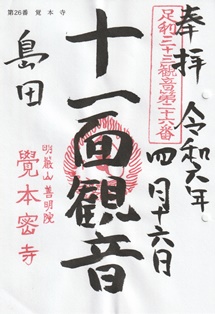 奉拝
足利三十三観音第二十六番
令和六年
四月十六日
十一面観音
第26番 覚本寺
島田
明巌山 善明院
覺本密寺